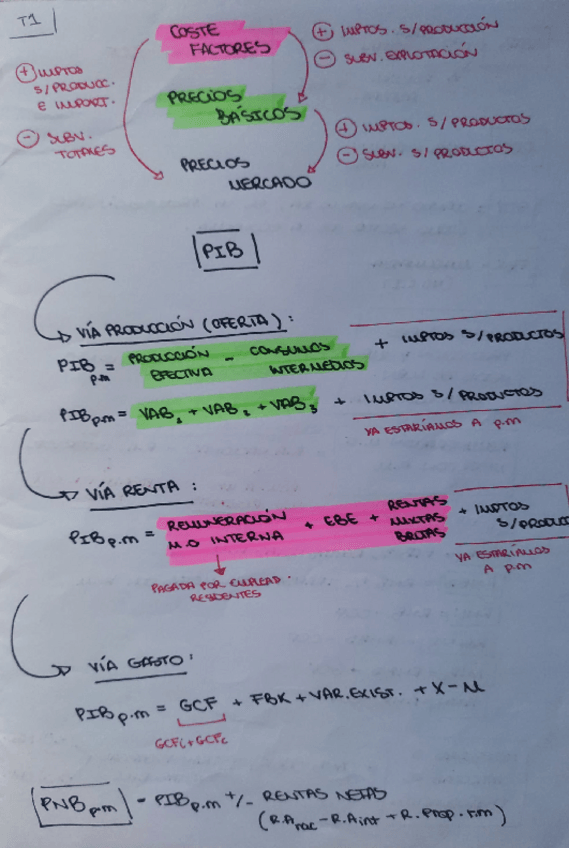 T1
COSTE
FACTORES
+ IMPTOS. S/PRODUCCIÓN
- SUBV. EXPLOTACIÓN
+ IMPTOS
S/PRODUCC.
E IMPORT.
- SUBV.
TOTALES
PRECIOS
BÁSICOS
+ IMPTOS. S/PRODUCTOS
- SUBV. S/PRODUCTOS
PRECIOS
MERCADO
PIB
VÍA PRODUCCIÓN (OFERTA):
PIB p.m = PRODUCCIÓN EFECTIVA - CONSUMOS INTERMEDIOS + IMPTOS S/PRODUCTOS
PIB p.m = VAB₁ + VAB₂ + VAB₃ + IMPTOS S/PRODUCTOS
YA ESTARÍAMOS A p.m
VÍA RENTA:
PIB p.m = REMUNERACIÓN M.O INTERNA + EBE + RENTAS MIXTAS BRUTAS + IMPTOS S/PRODUC
YA ESTARÍAMOS
A p.m
PAGADA POR EMPLEAD.
RESIDENTES
VÍA GASTO:
PIB p.m = GCF + FBK + VAR. EXIST. + X - M
PNB p.m = PIB p.m +/- RENTAS NETAS
(R.A nac - R.A int + R. Prop. rm)